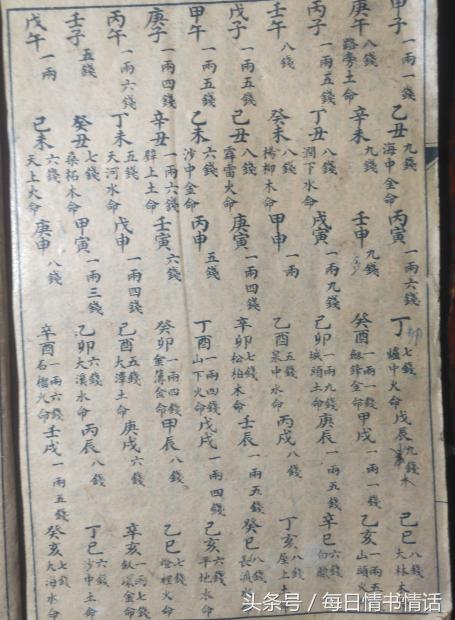 甲子 一兩一錢 乙丑 九錢 海中金命 丙寅 一兩六錢 丁卯 七錢 爐中火命 戊辰 九錢 木 己巳 八錢 大林木
庚午 八錢 路旁土命 辛未 九錢 壬申 九錢 癸酉 一兩一錢 劍鋒金命 甲戌 一兩一錢 乙亥 一兩五 山頭火
丙子 一兩五錢 丁丑 八錢 澗下水命 戊寅 一兩九錢 己卯 一兩九錢 城頭土命 庚辰 一兩五錢 辛巳 六錢 白臘
壬午 八錢 癸未 八錢 楊柳木命 甲申 一兩 乙酉 五錢 泉中水命 丙戌 八錢 丁亥 八錢 屋上土
戊子 一兩五錢 己丑 八錢 霹靂火命 庚寅 一兩四錢 辛卯 七錢 松柏木命 壬辰 一兩五錢 癸巳 八錢 長流水
甲午 一兩五錢 乙未 六錢 沙中金命 丙申 五錢 丁酉 一兩四錢 山下火命 戊戌 一兩四錢 己亥 六錢 平地木命
庚子 一兩四錢 辛丑 一兩六錢 壁上土命 壬寅 六錢 癸卯 一兩四錢 金簿金命 甲辰 八錢 乙巳 七錢 燈裡火命
丙午 一兩六錢 丁未 五錢 天河水命 戊申 一兩四錢 己酉 五錢 大澤土命 庚戌 六錢 辛亥 一兩七錢 釵環金命
壬子 五錢 癸丑 七錢 桑柘木命 甲寅 一兩三錢 乙卯 六錢 大溪水命 丙辰 八錢 丁巳 六錢 沙中土命
戊午 一兩 己未 六錢 天上火命 庚申 八錢 辛酉 一兩六錢 石榴火命 壬戌 一兩五錢 癸亥 七錢 大海水命
头条号 / 每日情书情话